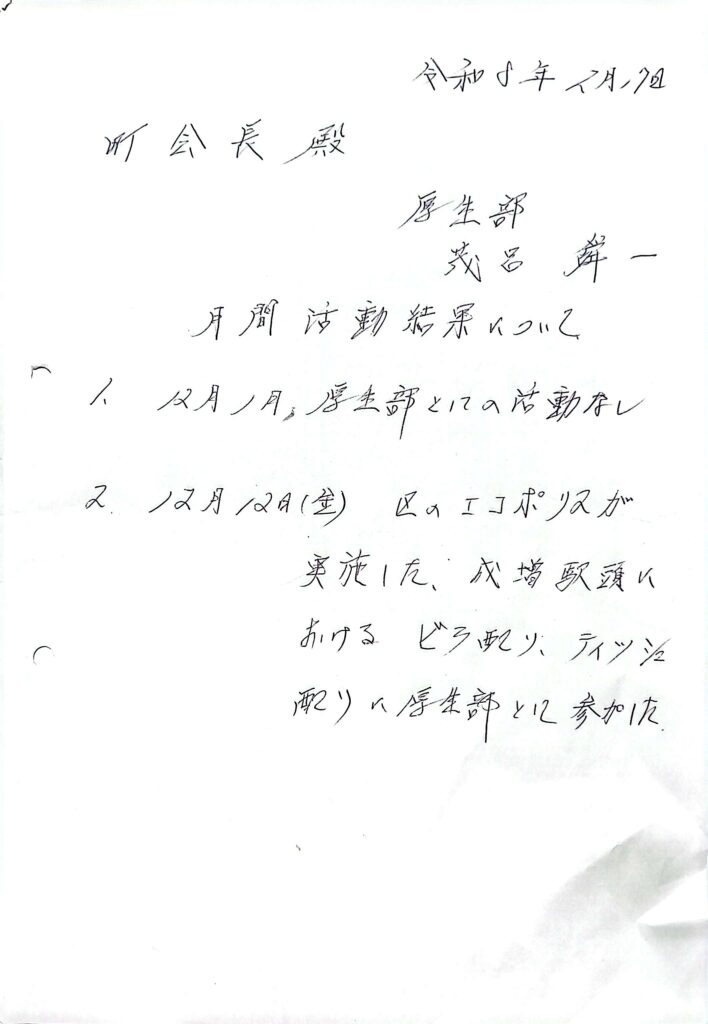 令和8年 2月17日
町会長殿
厚生部
茂呂 舜一
月間活動結果について
1. 12月1月、厚生部としての活動なし
2. 12月12日(金) 区のエコポリスが
実施した、成増駅頭に
おける ビラ配り、ティッシュ
配りに厚生部として参加した